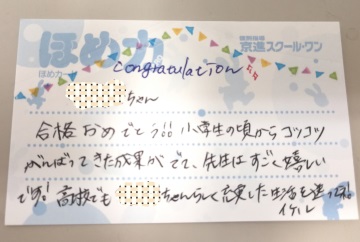 ほめ力
ほめ力
個別指導
京進スクール・ワン
Congratulation
ちゃん
合格おめでとう!! 小学生の頃からコツコツ
がんばってきた成果がでて、先生はすごく嬉しい
です! 高校でも ちゃんらしく充実した生活を送ってね。